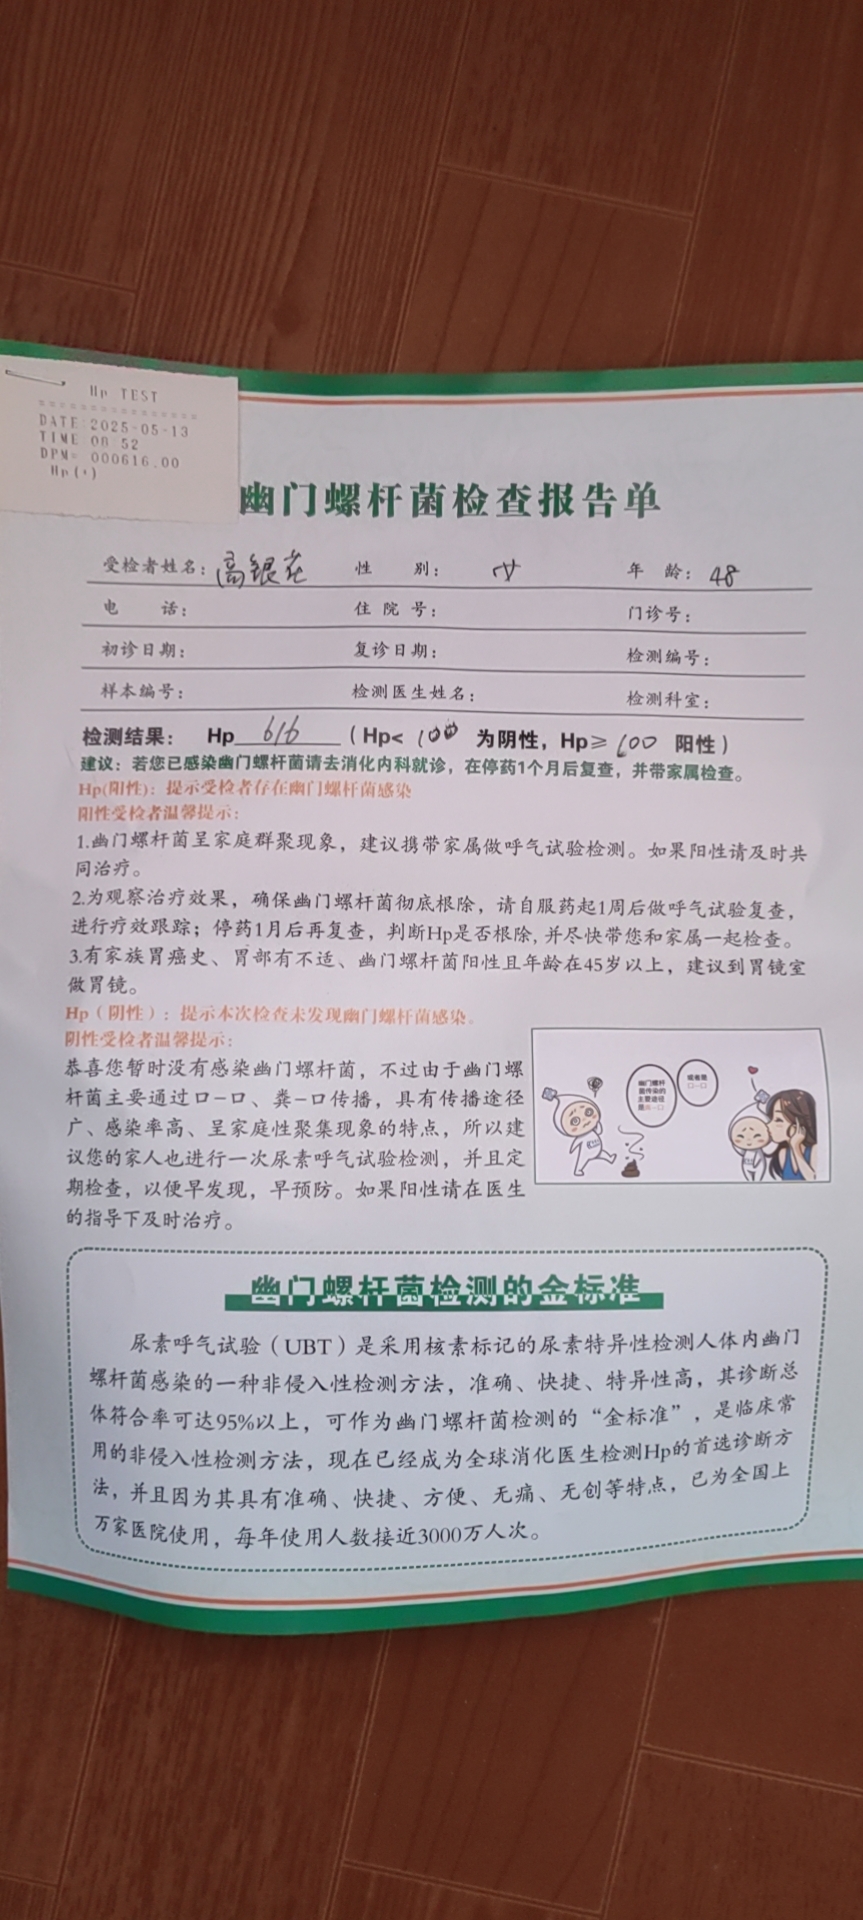 Hp TEST
================
DATE 2025-05-13
TIME 08 52
DPM= 000616.00
Hp(+)
幽门螺杆菌检查报告单
受检者姓名：高银花 性 别：女 年 龄：48
电 话： 住 院 号： 门诊号：
初诊日期： 复诊日期： 检测编号：
样本编号： 检测医生姓名： 检测科室：
检测结果： Hp 616 （Hp< 100 为阴性，Hp≥ 100 阳性）
建议：若您已感染幽门螺杆菌请去消化内科就诊，在停药1个月后复查，并带家属检查。
Hp(阳性)：提示受检者存在幽门螺杆菌感染
阳性受检者温馨提示：
1.幽门螺杆菌呈家庭群聚现象，建议携带家属做呼气试验检测。如果阳性请及时共
同治疗。
2.为观察治疗效果，确保幽门螺杆菌彻底根除，请自服药起1周后做呼气试验复查，
进行疗效跟踪；停药1月后再复查，判断Hp是否根除,并尽快带您和家属一起检查。
3.有家族胃癌史、胃部有不适、幽门螺杆菌阳性且年龄在45岁以上，建议到胃镜室
做胃镜。
Hp（阴性）：提示本次检查未发现幽门螺杆菌感染。
阴性受检者温馨提示：
恭喜您暂时没有感染幽门螺杆菌，不过由于幽门螺
杆菌主要通过口-口、粪-口传播，具有传播途径
广、感染率高、呈家庭性聚集现象的特点，所以建
议您的家人也进行一次尿素呼气试验检测，并且定
期检查，以便早发现，早预防。如果阳性请在医生
的指导下及时治疗。
幽门螺杆
菌传染的
主要途径
是粪-口
口-口
幽门螺杆菌检测的金标准
尿素呼气试验（UBT）是采用核素标记的尿素特异性检测人体内幽门
螺杆菌感染的一种非侵入性检测方法，准确、快捷、特异性高，其诊断总
体符合率可达95%以上，可作为幽门螺杆菌检测的“金标准”，是临床常
用的非侵入性检测方法，现在已经成为全球消化医生检测Hp的首选诊断方
法，并且因为其具有准确、快捷、方便、无痛、无创等特点，已为全国上
万家医院使用，每年使用人数接近3000万人次。